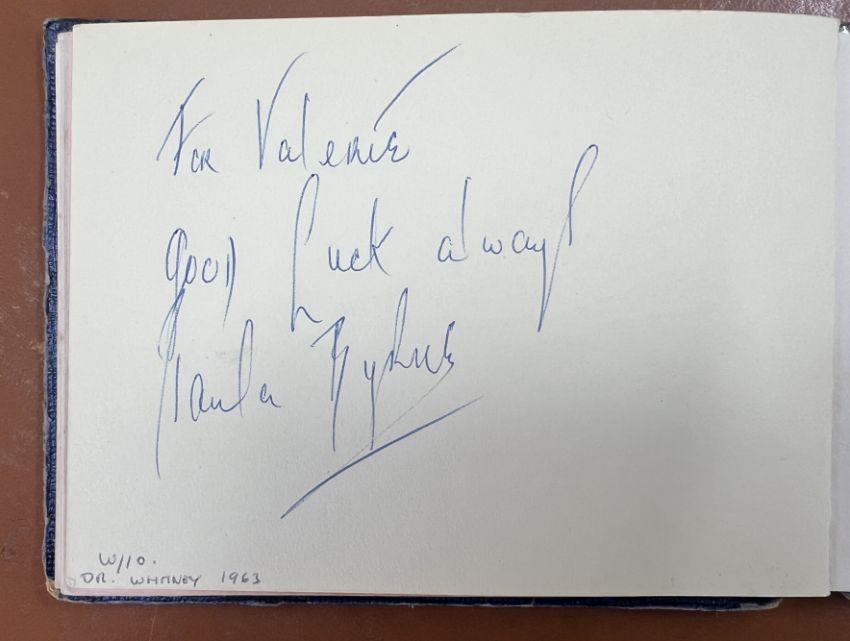 For Valerie
Good Luck always
Paula Byrne
W/10.
DR. WHITNEY 1963